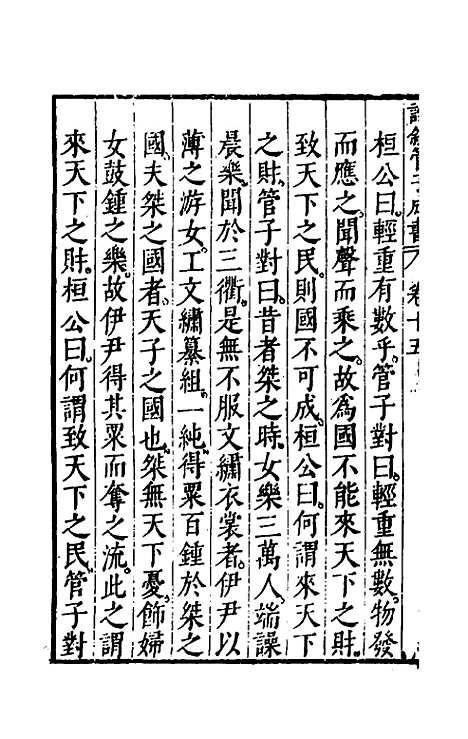 桓公曰輕重有數乎管子對曰輕重無數物發
而應之聞聲而乘之故為國不能來天下之財
致天下之民則國不可成桓公曰何謂來天下
之財管子對曰昔者桀之時女樂三萬人端譟
晨樂聞於三衢是無不服文繡衣裳者伊尹以
薄之游女工文繡纂組一純得粟百鍾於桀之
國夫桀之國者天子之國也桀無天下憂飾婦
女鼓鍾之樂故伊尹得其粟而奪之流此之謂
來天下之財桓公曰何謂致天下之民管子對
卷十五